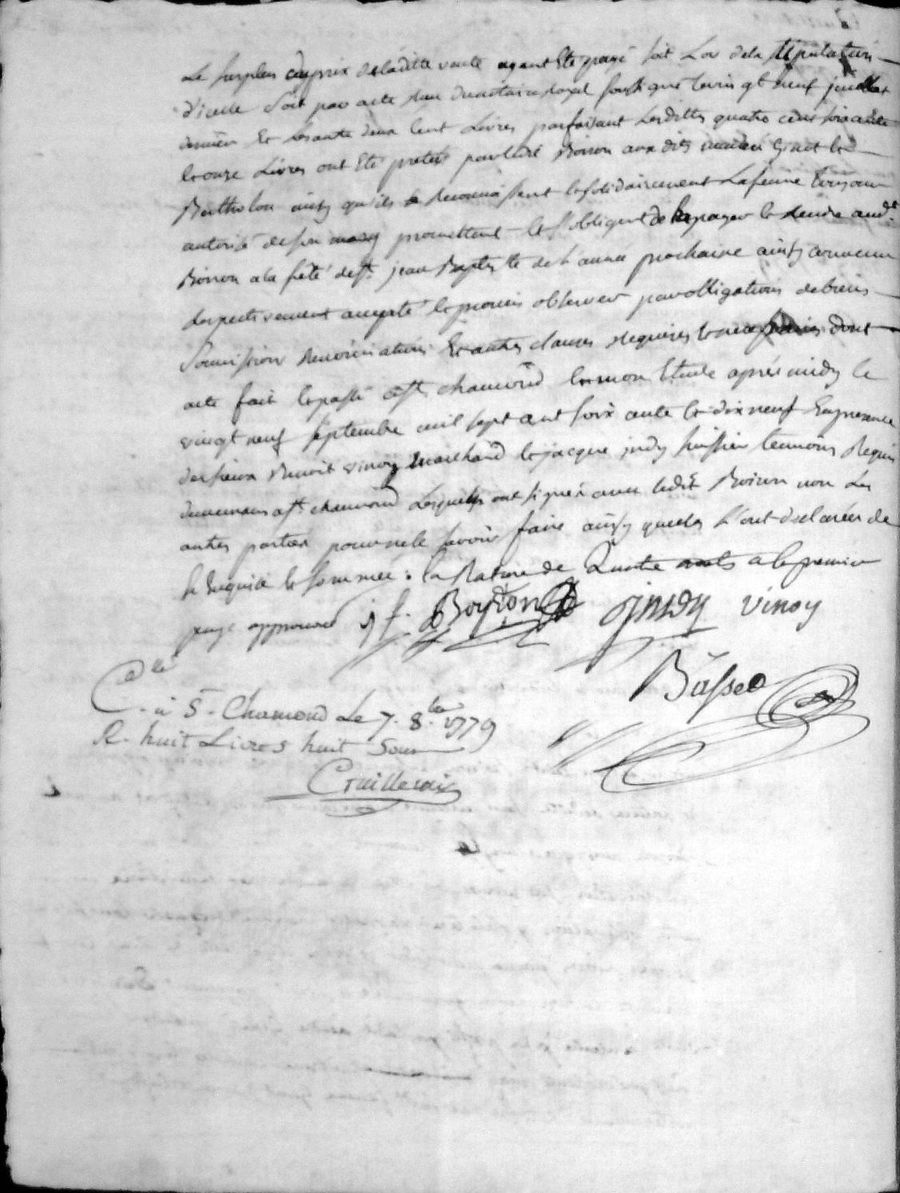 Le surplus du prix de laditte vente ayant été payé soit lor de la stipulation
d'icelle soit par acte recu du notaire royal soussigné le vingt neuf juillet
dernier Et les deux cent Livres parfaisant lesdittes quatre cent soixante
et onze Livres ont été pretés par ledit Boiron aux dits mariés
Bertholon ainsy qu'ils le reconnoissent et solidairement la femme toujour
autorisé de son mary promettent et s'obligent de payer et rendre audt
Boiron a la fête de st jean Baptiste de l'année prochaine ainsy convenu
respectivement accepté et promis observer par obligations de biens
Soumission renonciations Et autres clauses requises et necessaires dont
acte fait et passé a st chamond en mon Etude après midy le
vingt neuf septembre mil sept cent soixante et dix neuf En presence
de sieur Benoit vinoy marchand et jacque jndy huissier temoins Requis
demeurans a st chamond Lesquels ont signé avec ledit Boiron non les
autres parties pour ne le savoir faire ainsy quelles l'ont declarées de
ce Enquise et sommée : la Rature de Quatre mots a la premiere
page approuvé j f. Boyron jjndy vinoy
Basset
Clle
à St Chamond Le 7. 8.bre 1779
R. huit Livres huit Sous